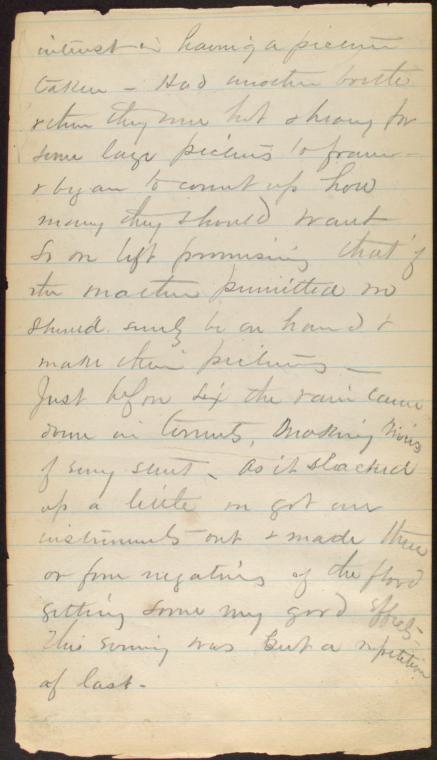 interest in having a picture
taken - Had another bottle
& then they were hot & heavy for
some large pictures to frame -
& began to count up how
many they should want
So we left promising that if
the weather permitted we
should surely be on hand &
make their pictures -
Just before six the rain came
down in torrents, making rivers
of every street - As it slacked
up a little we got our
instruments out & made three
or four negatives of the flood
getting some very good effects -
This evening was but a repetition
of last -